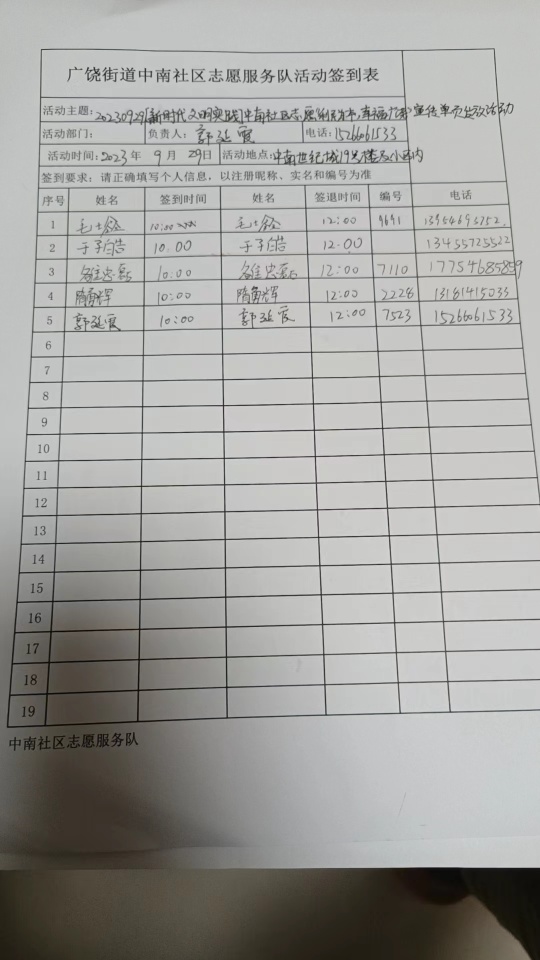 广饶街道中南社区志愿服务队活动签到表
活动主题:20230929[新时代文明实践]中南社区志愿 宣传单页发放活动
活动部门: 负责人:郭延霞 电话:15266061533
活动时间:2023年 9月 29日 活动地点:中南世纪城19号楼及小区内
签到要求:请正确填写个人信息,以注册昵称、实名和编号为准
序号 姓名 签到时间 姓名 签退时间 编号 电话
1 10:00 12:00 9691
2 10.00 12-00 13455725522
3 10:00 12:00 7110 17754685859
4 隋勇辉 10:00 隋勇辉 12:00 2228 13181415033
5 郭延霞 10:00 郭延霞 12:00 7523 15266061533
6
7
8
9
10
11
12
13
14
15
16
17
18
19
中南社区志愿服务队